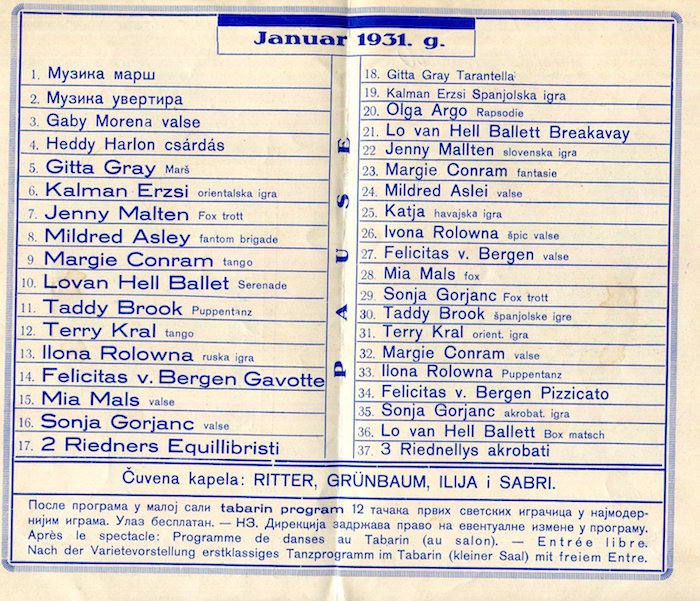 Januar 1931. g.
1. Музика марш
2. Музика увертира
3. Gaby Morena valse
4. Heddy Harlon csárdás
5. Gitta Gray Marš
6. Kalman Erzsi orientalska igra
7. Jenny Malten Fox trott
8. Mildred Asley fantom brigade
9 Margie Conram tango
10. Lovan Hell Ballet Serenade
11. Taddy Brook Puppentanz
12. Terry Kral tango
13. Ilona Rolowna ruska igra
14. Felicitas v. Bergen Gavotte
15. Mia Mals valse
16. Sonja Gorjanc valse
17. 2 Riedners Equillibristi
PAUSE
18. Gitta Gray Tarantella
19. Kalman Erzsi Spanjolska igra
20. Olga Argo Rapsodie
21. Lo van Hell Ballett Breakavay
22 Jenny Mallten slovenska igra
23. Margie Conram fantasie
24. Mildred Aslei valse
25. Katja havajska igra
26. Ivona Rolowna špic valse
27. Felicitas v. Bergen valse
28. Mia Mals fox
29. Sonja Gorjanc Fox trott
30. Taddy Brook španjolske igre
31. Terry Kral orient. igra
32. Margie Conram valse
33. Ilona Rolowna Puppentanz
34. Felicitas v. Bergen Pizzicato
35. Sonja Gorjanc akrobat. igra
36. Lo van Hell Ballett Box matsch
37. 3 Riednellys akrobati
Čuvena kapela: RITTER, GRÜNBAUM, ILIJA i SABRI.
После програма у малој сали tabarin program 12 тачака првих светских играчица у најмодер-
нијим играма. Улаз бесплатан. — НЗ. Дирекција задржава право на евентуалне измене у програму.
Après le spectacle: Programme de danses au Tabarin (au salon). — Entrée libre.
Nach der Varietevorstellung erstklassiges Tanzprogramm im Tabarin (kleiner Saal) mit freiem Entre.